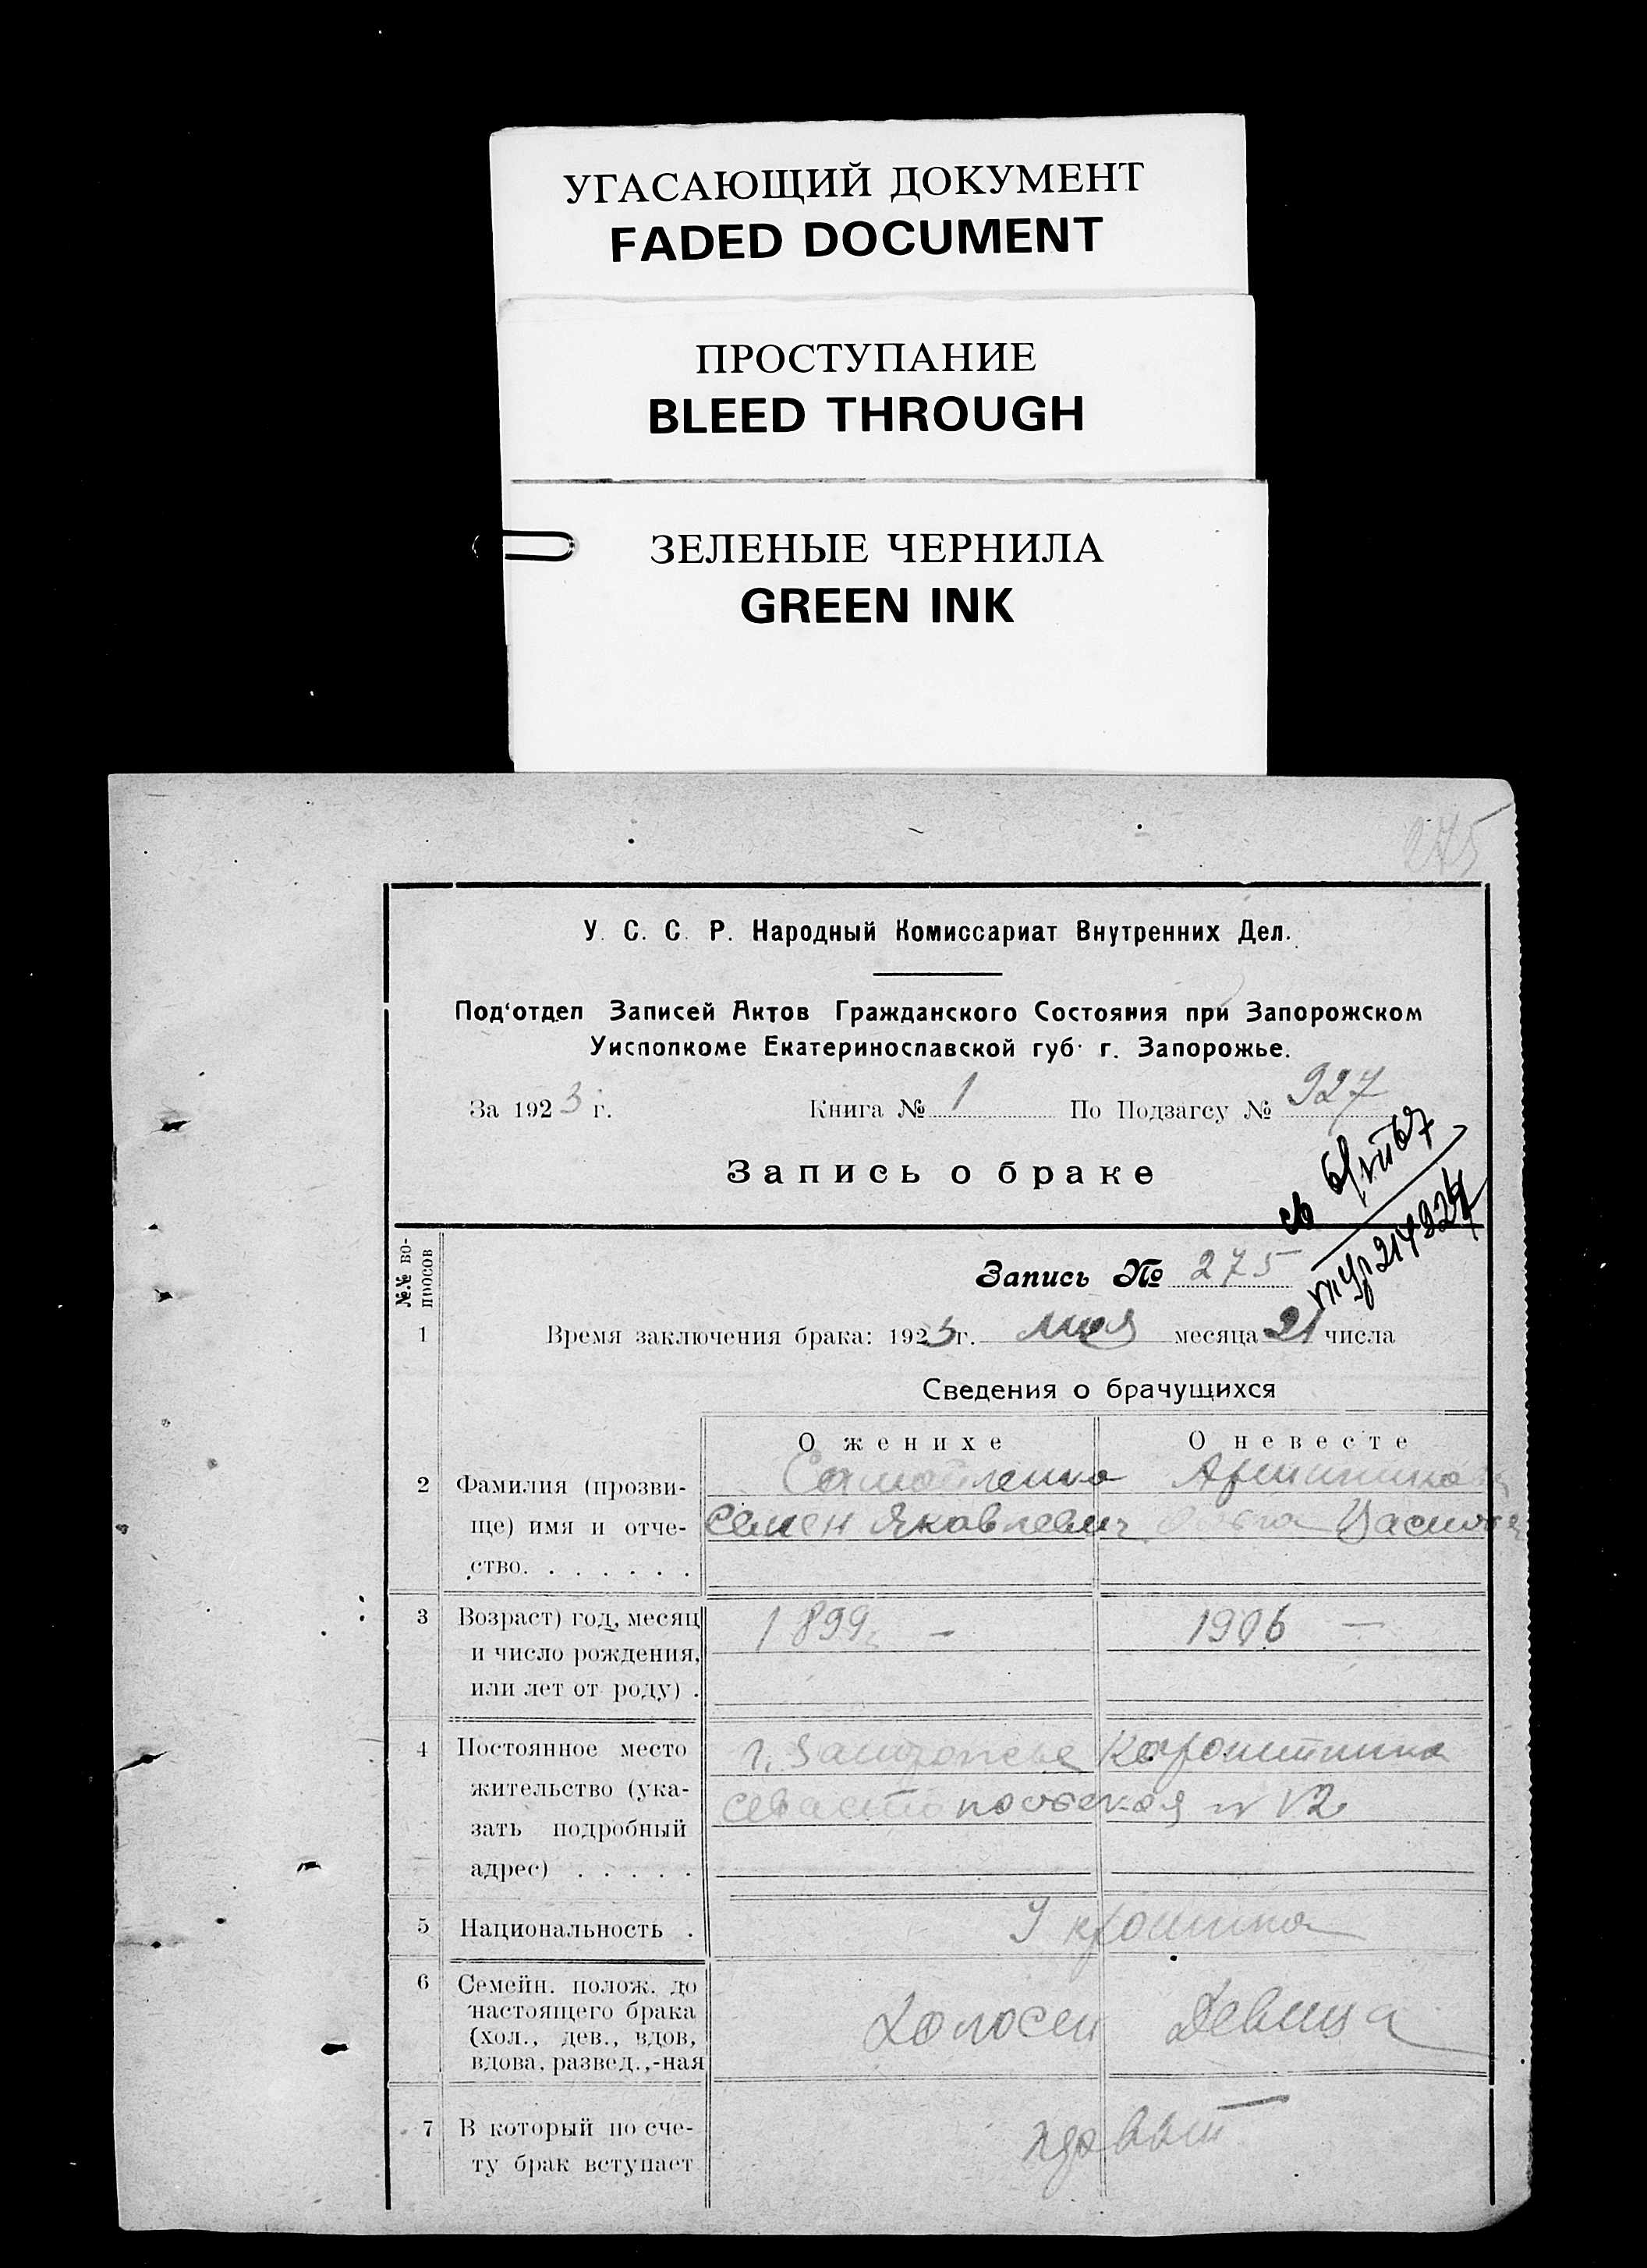 УГАСАЮЩИЙ ДОКУМЕНТ
FADED DOCUMENT
ПРОСТУПАНИЕ
BLEED THROUGH
ЗЕЛЕНЫЕ ЧЕРНИЛА
GREEN INK
275
У. С. С. Р. Народный Комиссариат Внутренних Дел.
Под‘отдел Записей Актов Гражданского Состояния при Запорожском
Уисполкоме Екатеринославской губ. г. Запорожье.
За 1923 г. Книга № 1 По Подзагсу № 927
Запись о браке
№№ вопросов
Запись № 275
1 Время заключения брака: 1923 г. мая месяца 21 числа
Сведения о брачущихся
О женихе О невесте
2 Фамилия (прозви- Самойленко
ще) имя и отче- Семен Яковлевич
ство. . . . . . .
3 Возраст) год, месяц 1899 — 1906 —
и число рождения,
или лет от роду) .
4 Постоянное место г. Запорожье
жительство (ука- Севастопольская № 12
зать подробный
адрес) . . . . .
5 Национальность . Украинца
6 Семейн. полож. до
настоящего брака Холосен Девица
(хол., дев., вдов,
вдова, развед.,-ная
7 В который по сче- первый
ту брак вступает